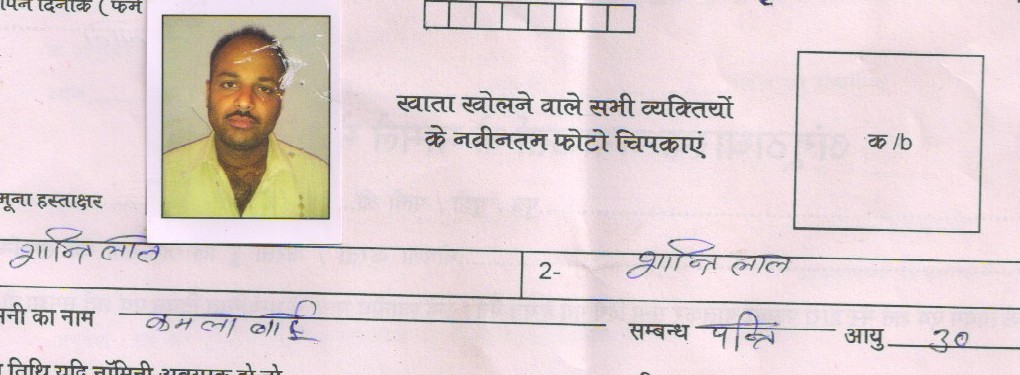 दिनांक ( फर्म
खाता खोलने वाले सभी व्यक्तियों
के नवीनतम फोटो चिपकाएं
क /b
मूना हस्ताक्षर
शान्ति लाल
2- शान्ति लाल
नी का नाम कमला बाई सम्बन्ध पत्नि आयु 30
तिथि यदि नॉमिनी अवयस्क हो तो